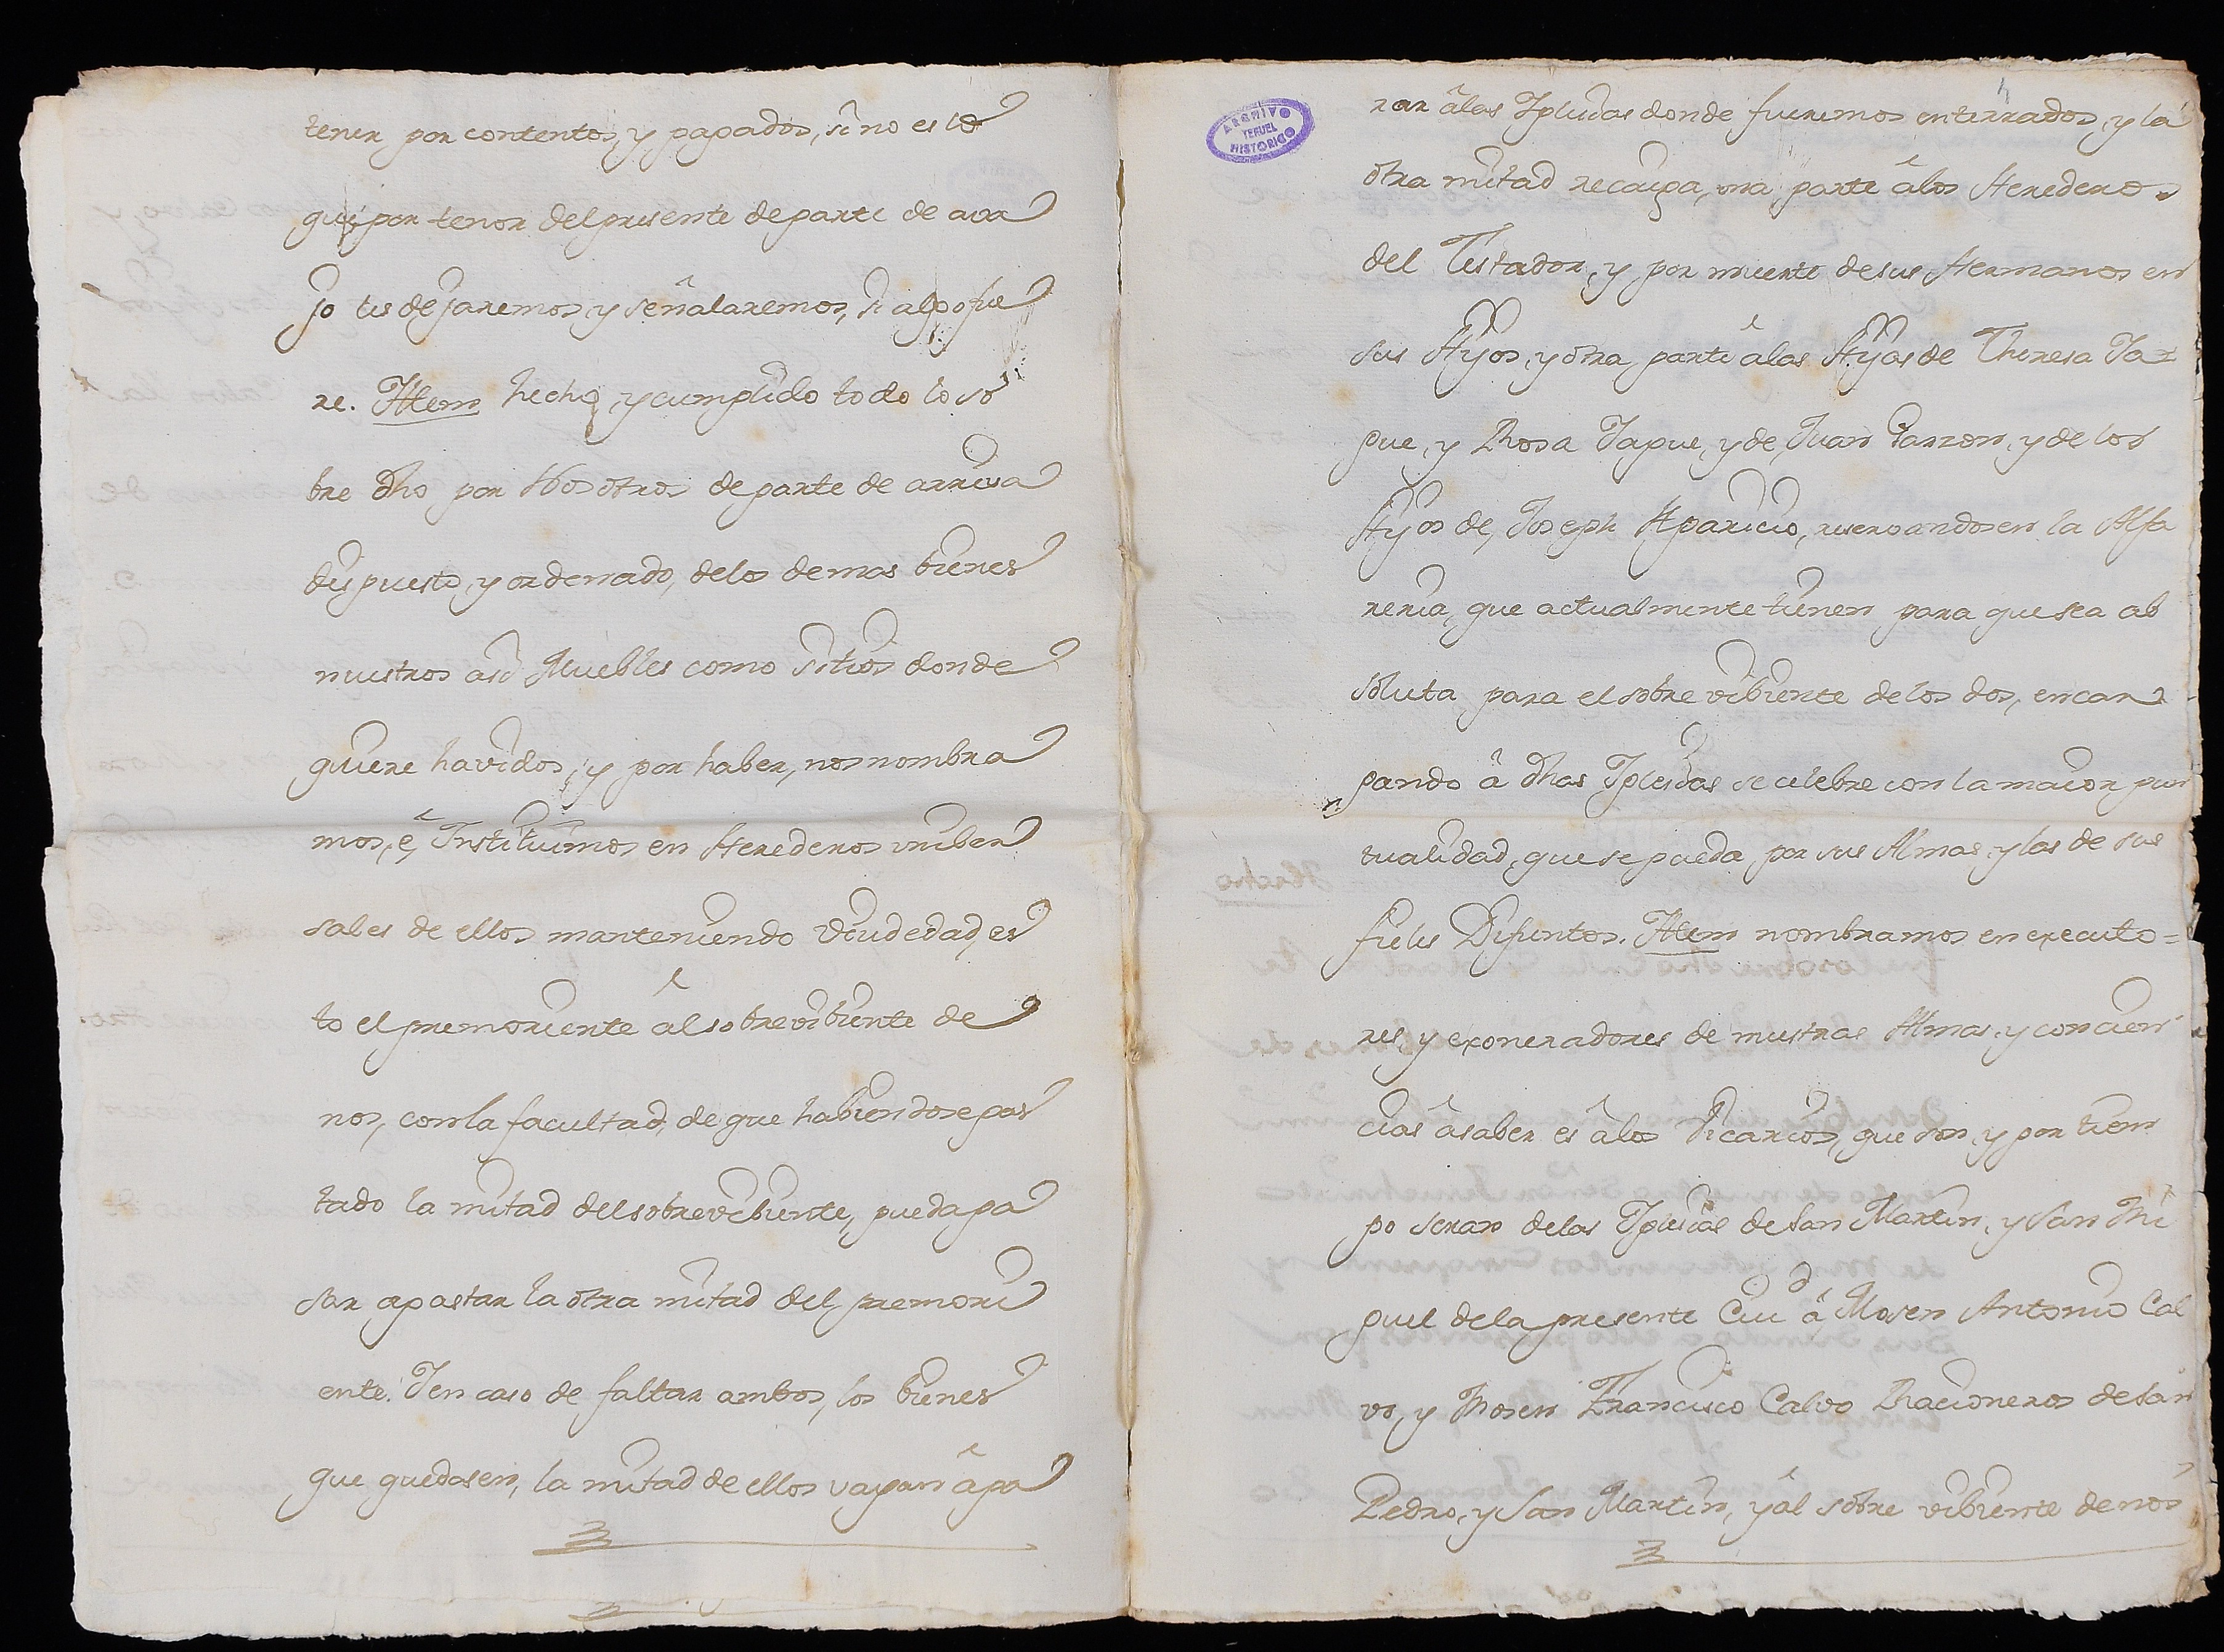 tener por contentos, y pagados, sino es lo
que por tenor del presente de parte de ava
jo les dejaremos, y señalaremos, si algo fue
re. Ittem hecho, y cumplido todo lo so
bre dho por Nosotros de parte de arriva
dispuesto, y ordenado, de los demas bienes
nuestros asi Muebles como sitios donde
quiere havidos, y por haber, nos nombra
mos, ê, Instituimos en Herederos uniber
sales de ellos manteniendo viudedad, es
to el premoriente â el sobrevibiente de
nos, con la facultad, de que habiendose gas
tado la mitad del sobrevibiente, pueda pa
sar agastar la otra mitad del premori
ente. Y en caso de faltar ambos, los bienes
que quedasen, la mitad de ellos vayan â pa
ARCHIVO
TERUEL
HISTORICO
rar âlas Iglesias donde fueremos enterrados, y la
otra mitad recaiga, una parte âlos Heredero
del Testador, y por muerte de sus Hermanos en
sus Hijos, y otra parte âlas Hijas de Theresa Ya=
gue, y Rosa Yague, y de Juan Garzon, y de los
Hijos de Joseph Aparicio, reservandosen la Alfa
reria, que actualmente tienen para que sea ab
soluta para el sobrevibiente de los dos, encar
gando â dhas Iglesias se celebre con la maior pun
tualidad, que se pueda por sus Almas, y las de sus
fieles Difuntos. Ittem nombramos en executo=
res, y exoneradores de nuestras Almas, y concien
cias âsaber es âlos Vicarios, que son, y por tiem
po seran delas Iglesias de San Martin, y San Mi
guel dela presente Ciud â Mosen Antonio Cal
vo, y Mosen Francisco Calvo Racioneros de San
Pedro, y San Martin, y âl sobre vibiente de nos